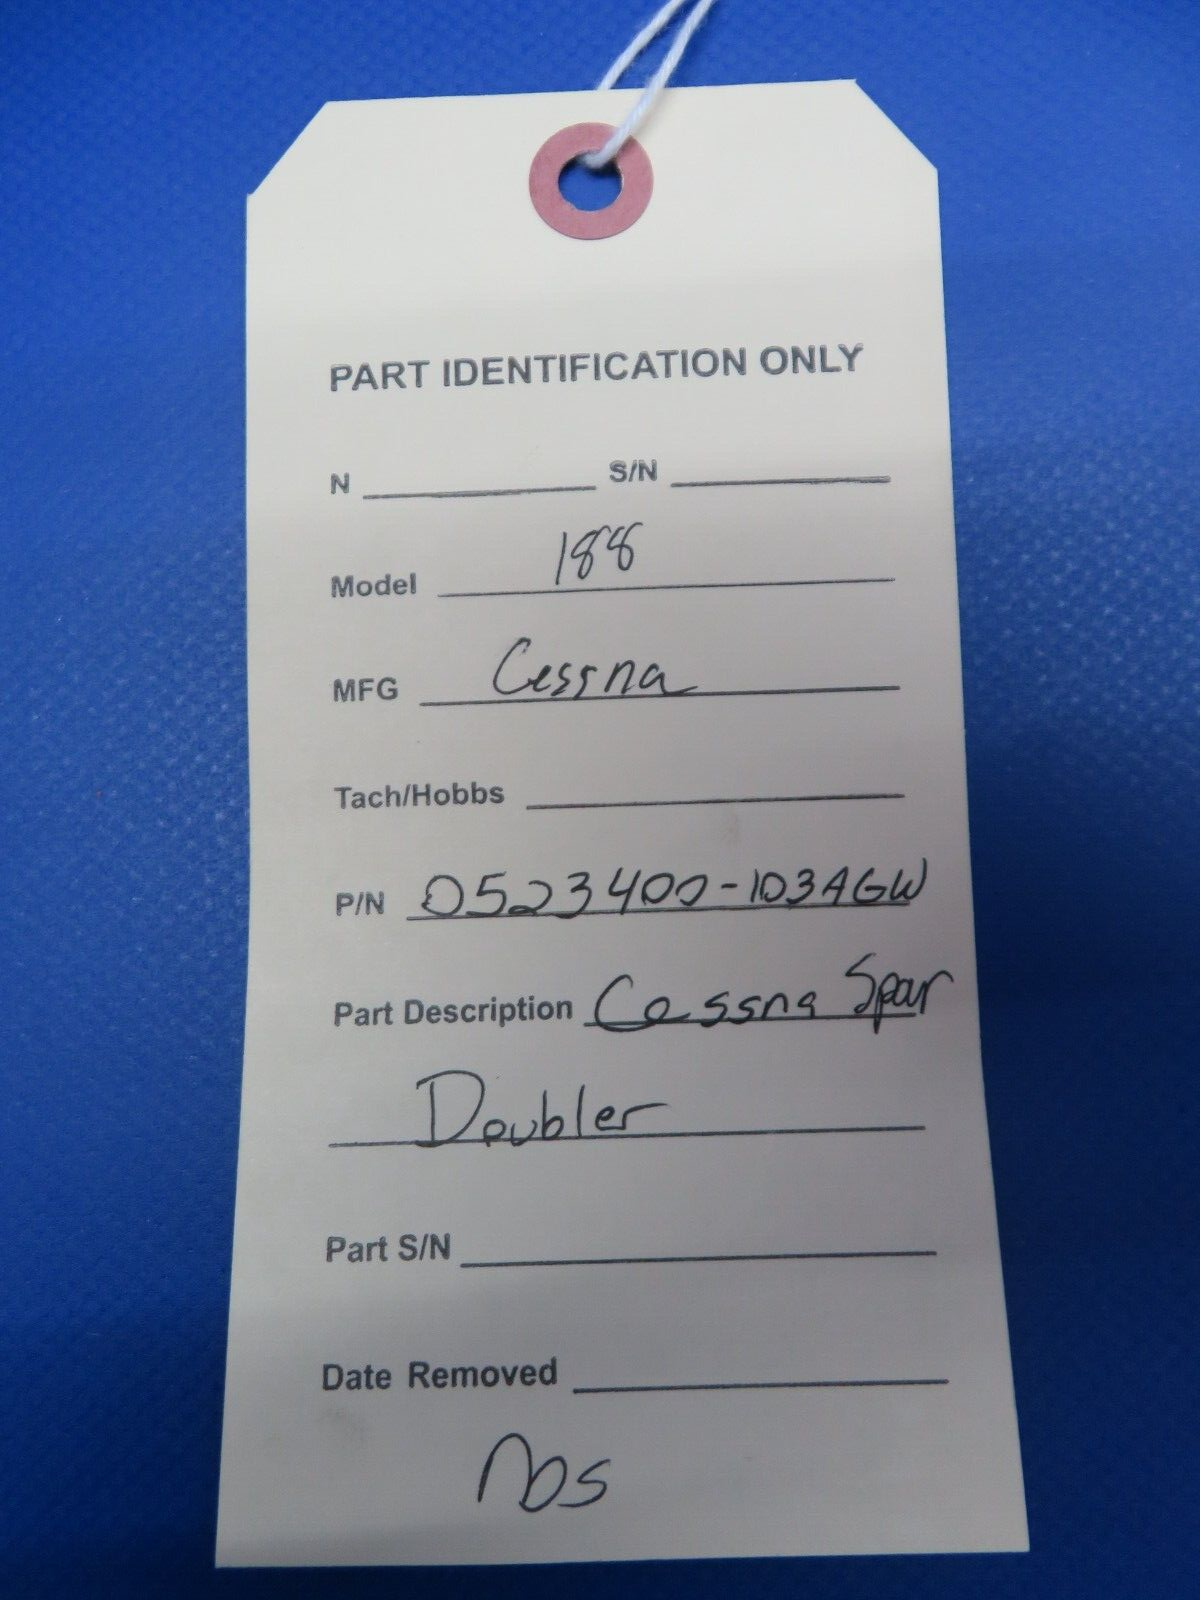 PART IDENTIFICATION ONLY
N S/N
Model 188
MFG Cessna
Tach/Hobbs
P/N 0523400-103AGW
Part Description Cessna Spar
Doubler
Part S/N
Date Removed
NOS